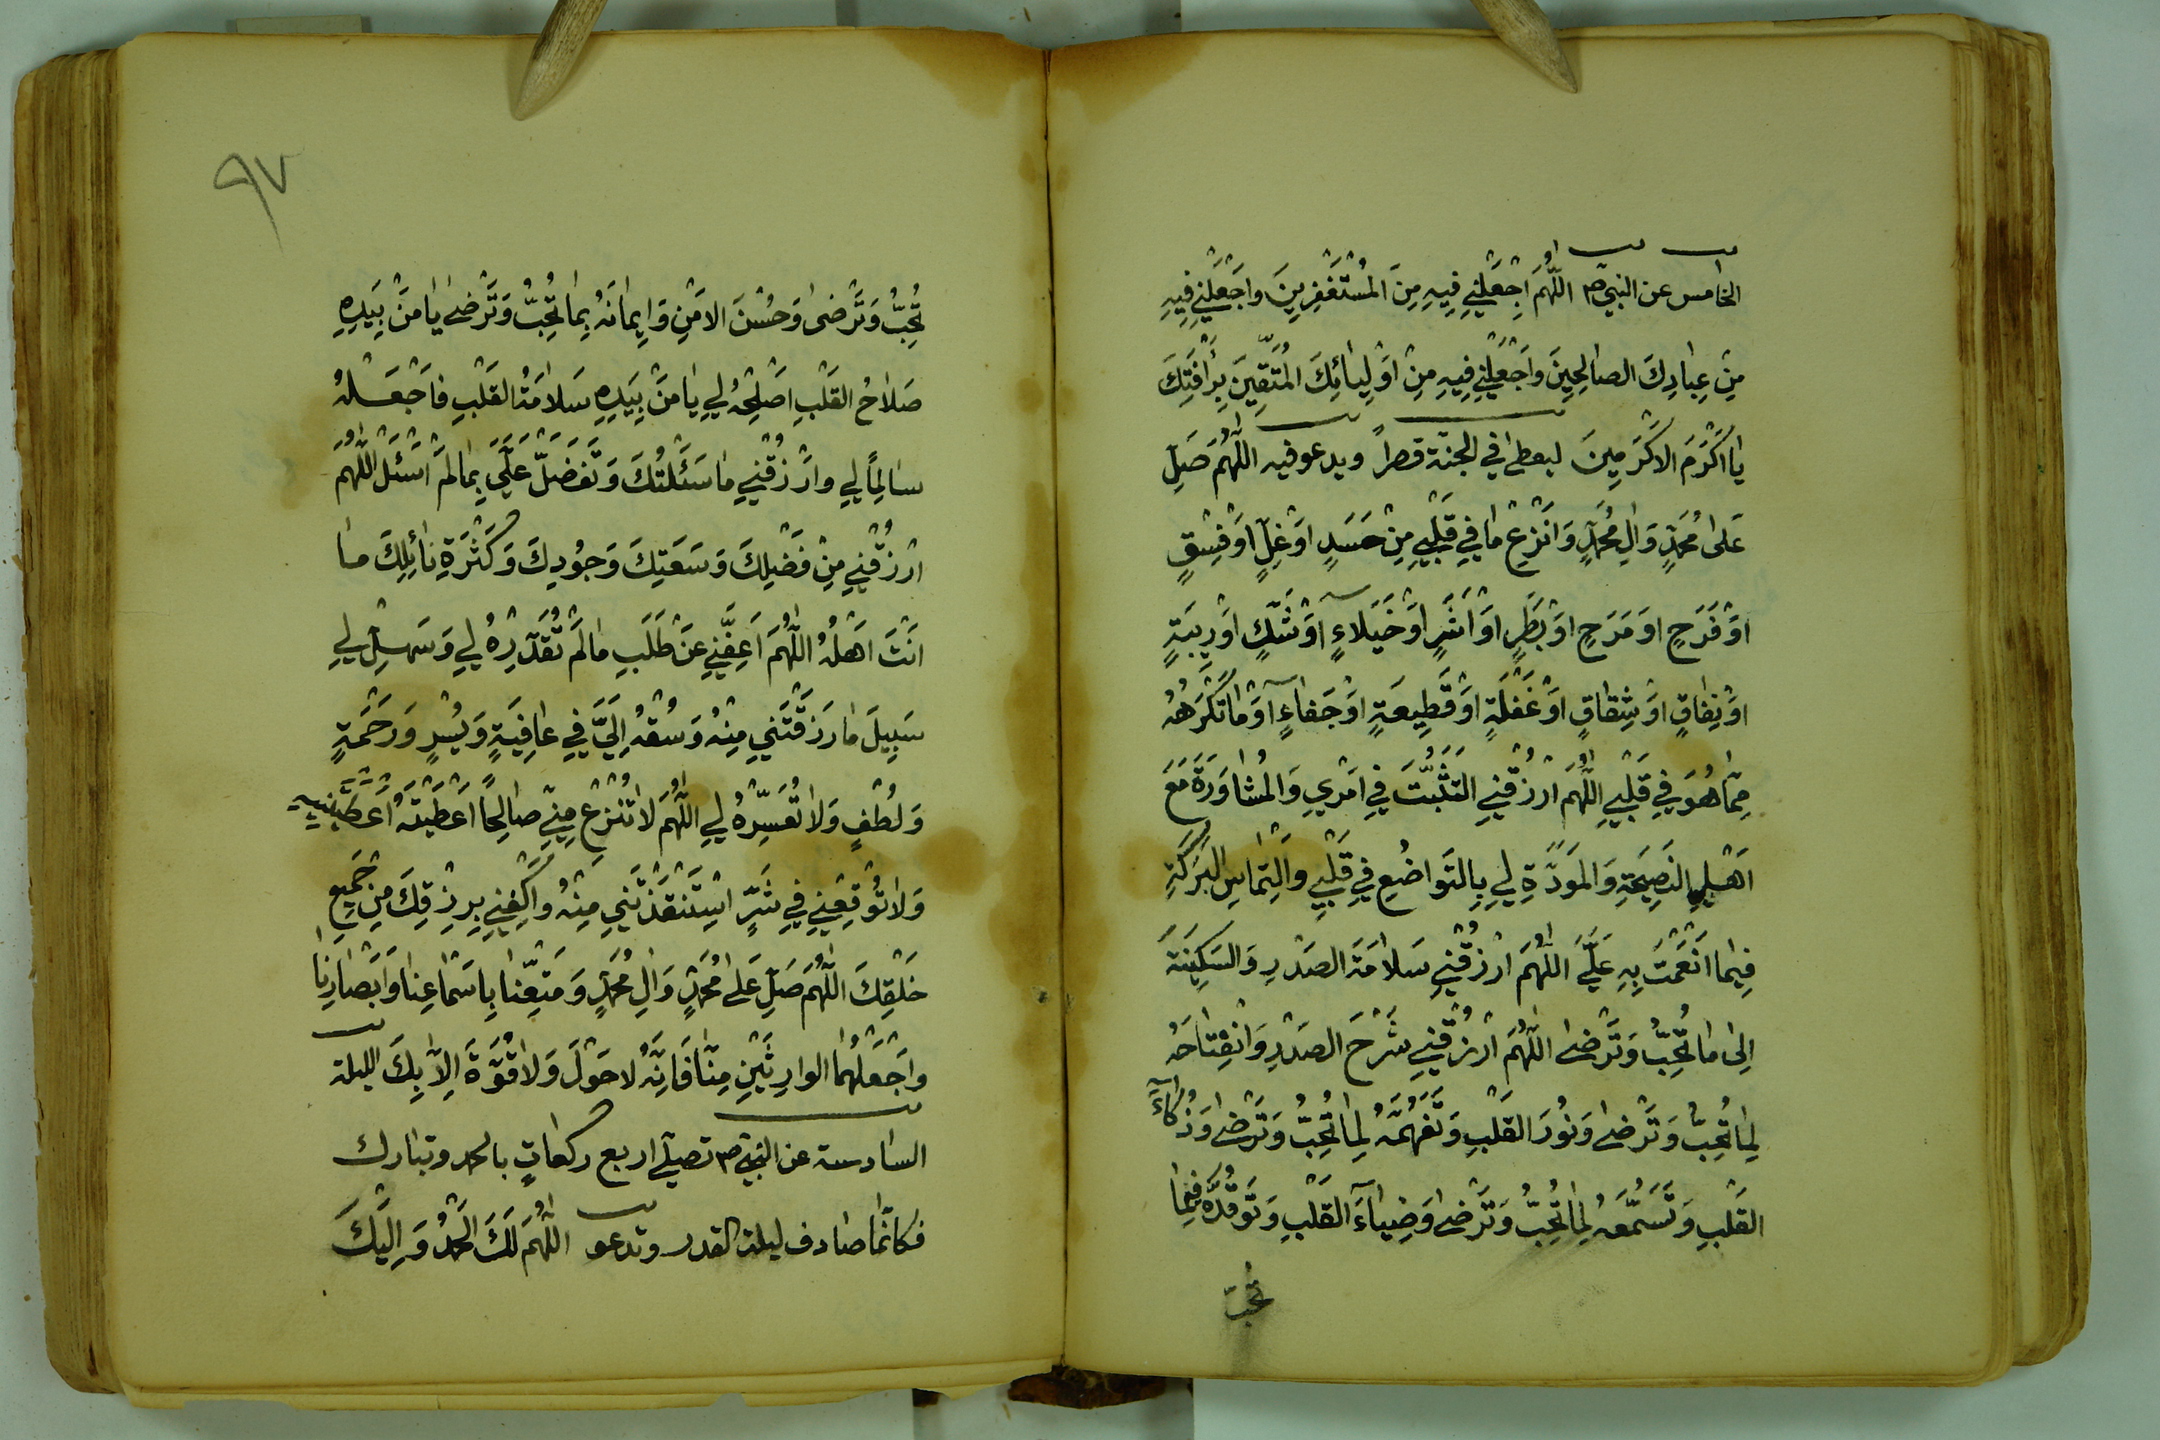 الخامس عن النبي ص اَللّٰهُمَّ اجْعَلْنِي فِيهِ مِنَ المُسْتَغْفِرِينَ وَاجْعَلْنِي فِيهِ
مِنْ عِبادِكَ الصالِحِينَ وَاجْعَلْنِي فِيهِ مِنْ اَوْلِيائِكَ المُتَّقِينَ بِرَأْفَتِكَ
يا اَكْرَمَ الاَكْرَمِينَ ليعطى في الجنة قصراً ويدعو فيه اللّٰهُمَّ صَلِّ
عَلى مُحَمَّدٍ وَالِ مُحَمَّدٍ وَانْزِعْ ما فِي قَلْبِي مِنْ حَسَدٍ اَوْ غِلٍّ اَوْ فِسْقٍ
اَوْ فَرَحٍ اَوْ مَرَحٍ اَوْ بَطَرٍ اَوْ اَشَرٍ اَوْ خُيَلاءٍ اَوْ شَكٍّ اَوْ رِيبَةٍ
اَوْ نِفاقٍ اَوْ شِقاقٍ اَوْ غَفْلَةٍ اَوْ قَطِيعَةٍ اَوْ جَفاءٍ اَوْ ما تَكْرَهُهُ
مِمّا هُوَ فِي قَلْبِي اللّٰهُمَّ ارْزُقْنِي التَثَبُّتَ فِي اَمْرِي وَالمُشاوَرَةَ مَعَ
اَهْلِ النَصِيحَةِ وَالمَوَدَّةِ لِي بِالتَواضُعِ فِي قَلْبِي وَالتِماسِ البَرَكَةِ
فِيما اَنْعَمْتَ بِهِ عَلَيَّ اللّٰهُمَّ ارْزُقْنِي سَلامَةَ الصَدْرِ وَالسَكِينَةَ
اِلى ما تُحِبُّ وَتَرْضى اللّٰهُمَّ ارْزُقْنِي شَرْحَ الصَدْرِ وَانْفِتاحَهُ
لِما تُحِبُّ وَتَرْضى وَنُورَ القَلْبِ وَتَفَهُّمَهُ لِما تُحِبُّ وَتَرْضى وَذَكاءَ
القَلْبِ وَتَسَمُّعَهُ لِما تُحِبُّ وَتَرْضى وَضِياءَ القَلْبِ وَتَوَقُّدَهُ فِيما
تحبّ
٩٧
تُحِبُّ وَتَرْضى وَحُسْنَ الاَمْنِ وَاِيمانَهُ بِما تُحِبُّ وَتَرْضى يا مَنْ بِيَدِهِ
صَلاحُ القَلْبِ اَصْلِحْهُ لِي يا مَنْ بِيَدِهِ سَلامَةُ القَلْبِ فَاجْعَلْهُ
سالِماً لِي وَارْزُقْنِي ما سَئَلْتُكَ وَتَفَضَّلْ عَلَيَّ بِما لَمْ اَسْئَلْ اللّٰهُمَّ
ارْزُقْنِي مِنْ فَضْلِكَ وَسَعَتِكَ وَجُودِكَ وَكَثْرَةِ نائِلِكَ ما
اَنْتَ اَهْلُهُ اللّٰهُمَّ اَعْفِنِي عَنْ طَلَبِ ما لَمْ تُقَدِّرْهُ لِي وَسَهِّلْ لِي
سَبِيلَ ما رَزَقْتَنِي مِنْهُ وَسُقْهُ اِلَيَّ فِي عافِيَةٍ وَيُسْرٍ وَرَحْمَةٍ
وَلُطْفٍ وَلا تُعَسِّرْهُ لِي اللّٰهُمَّ لا تَنْزِعْ مِنِّي صالِحاً اَعْطَيْتَهُ اَعْطَيْتَنِيهِ
وَلا تُوقِعْنِي فِي شَرٍّ اسْتَنْقَذْتَنِي مِنْهُ وَاكْفِنِي بِرِزْقِكَ مِنْ جَمِيعِ
خَلْقِكَ اللّٰهُمَّ صَلِّ عَلى مُحَمَّدٍ وَالِ مُحَمَّدٍ وَمَتِّعْنا بِاَسْماعِنا وَاَبْصارِنا
وَاجْعَلْهُما الوارِثَيْنِ مِنّا فَاِنَّهُ لا حَوْلَ وَلا قُوَّةَ اِلاّ بِكَ الليلة
السادسة عن النبي ص تصلّى اربع ركعاتٍ بالحمد وتبارك
فكانّما صادف ليلة القدر وتدعو اللّٰهُمَّ لَكَ الحَمْدُ وَاِلَيْكَ